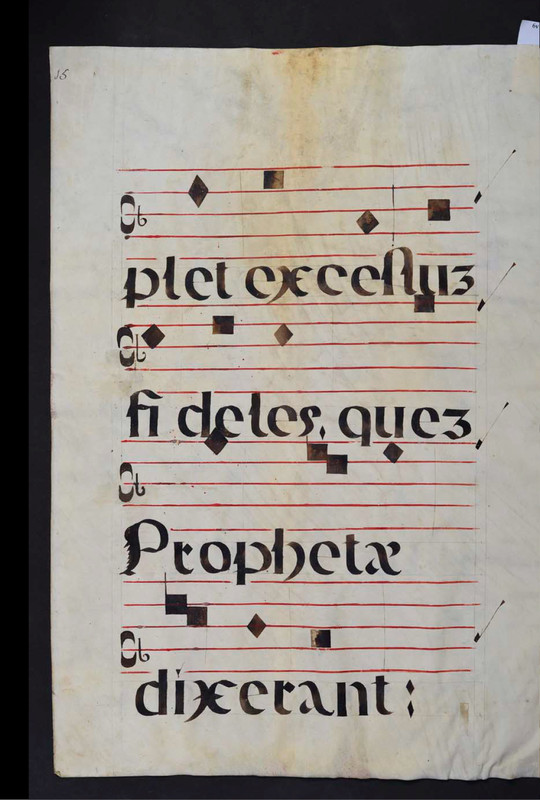 15
plet excelſuz
fi deles, quez
Prophetæ
dixerant :